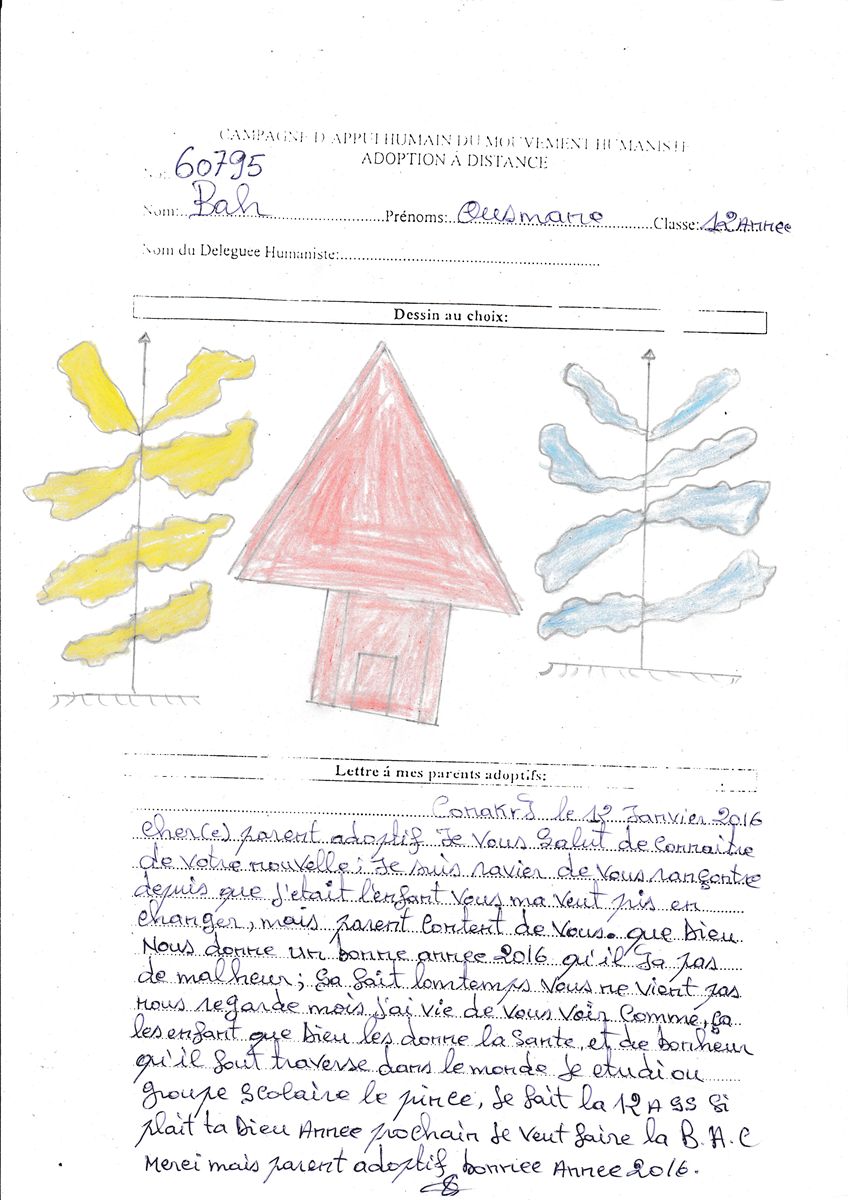 CAMPAGNE D'APPUI HUMAIN DU MOUVEMENT HUMANISTE
ADOPTION À DISTANCE
No: 60795
Nom: Bah Prénoms: Ousmane Classe: 12e Année
Nom du Deleguee Humaniste:
Dessin au choix:
Lettre á mes parents adoptifs:
Conakry le 12 Janvier 2016
cher(e) parent adoptif Je Vous Salut de connaitre
de votre nouvelle; Je suis ravier de Vous rançontre
depuis que j'etait l'enfant Vous ma veut pis en
changer, mais parent Content de Vous. que Dieu
Nous donne un bonne annee 2016 qu'il Ya pas
de malheur; sa fait lomtemps Vous ne vient pas
nous regarde mois j'ai vie de Vous Voir Comme, ça
les enfant que Dieu les donne la Sante, et du bonheur
qu'il faut traverse dans le monde Je etudi ou
groupe Scolaire le pince, Je fait la 12 A SS Si
plait ta Dieu Annee prochain Je Veut faire la B.A.C
Merci mais parent adoptif bonnee Annee 2016.